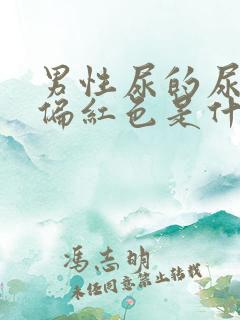 男性尿的尿
偏红色是什
冯志明
未经同意禁止转载